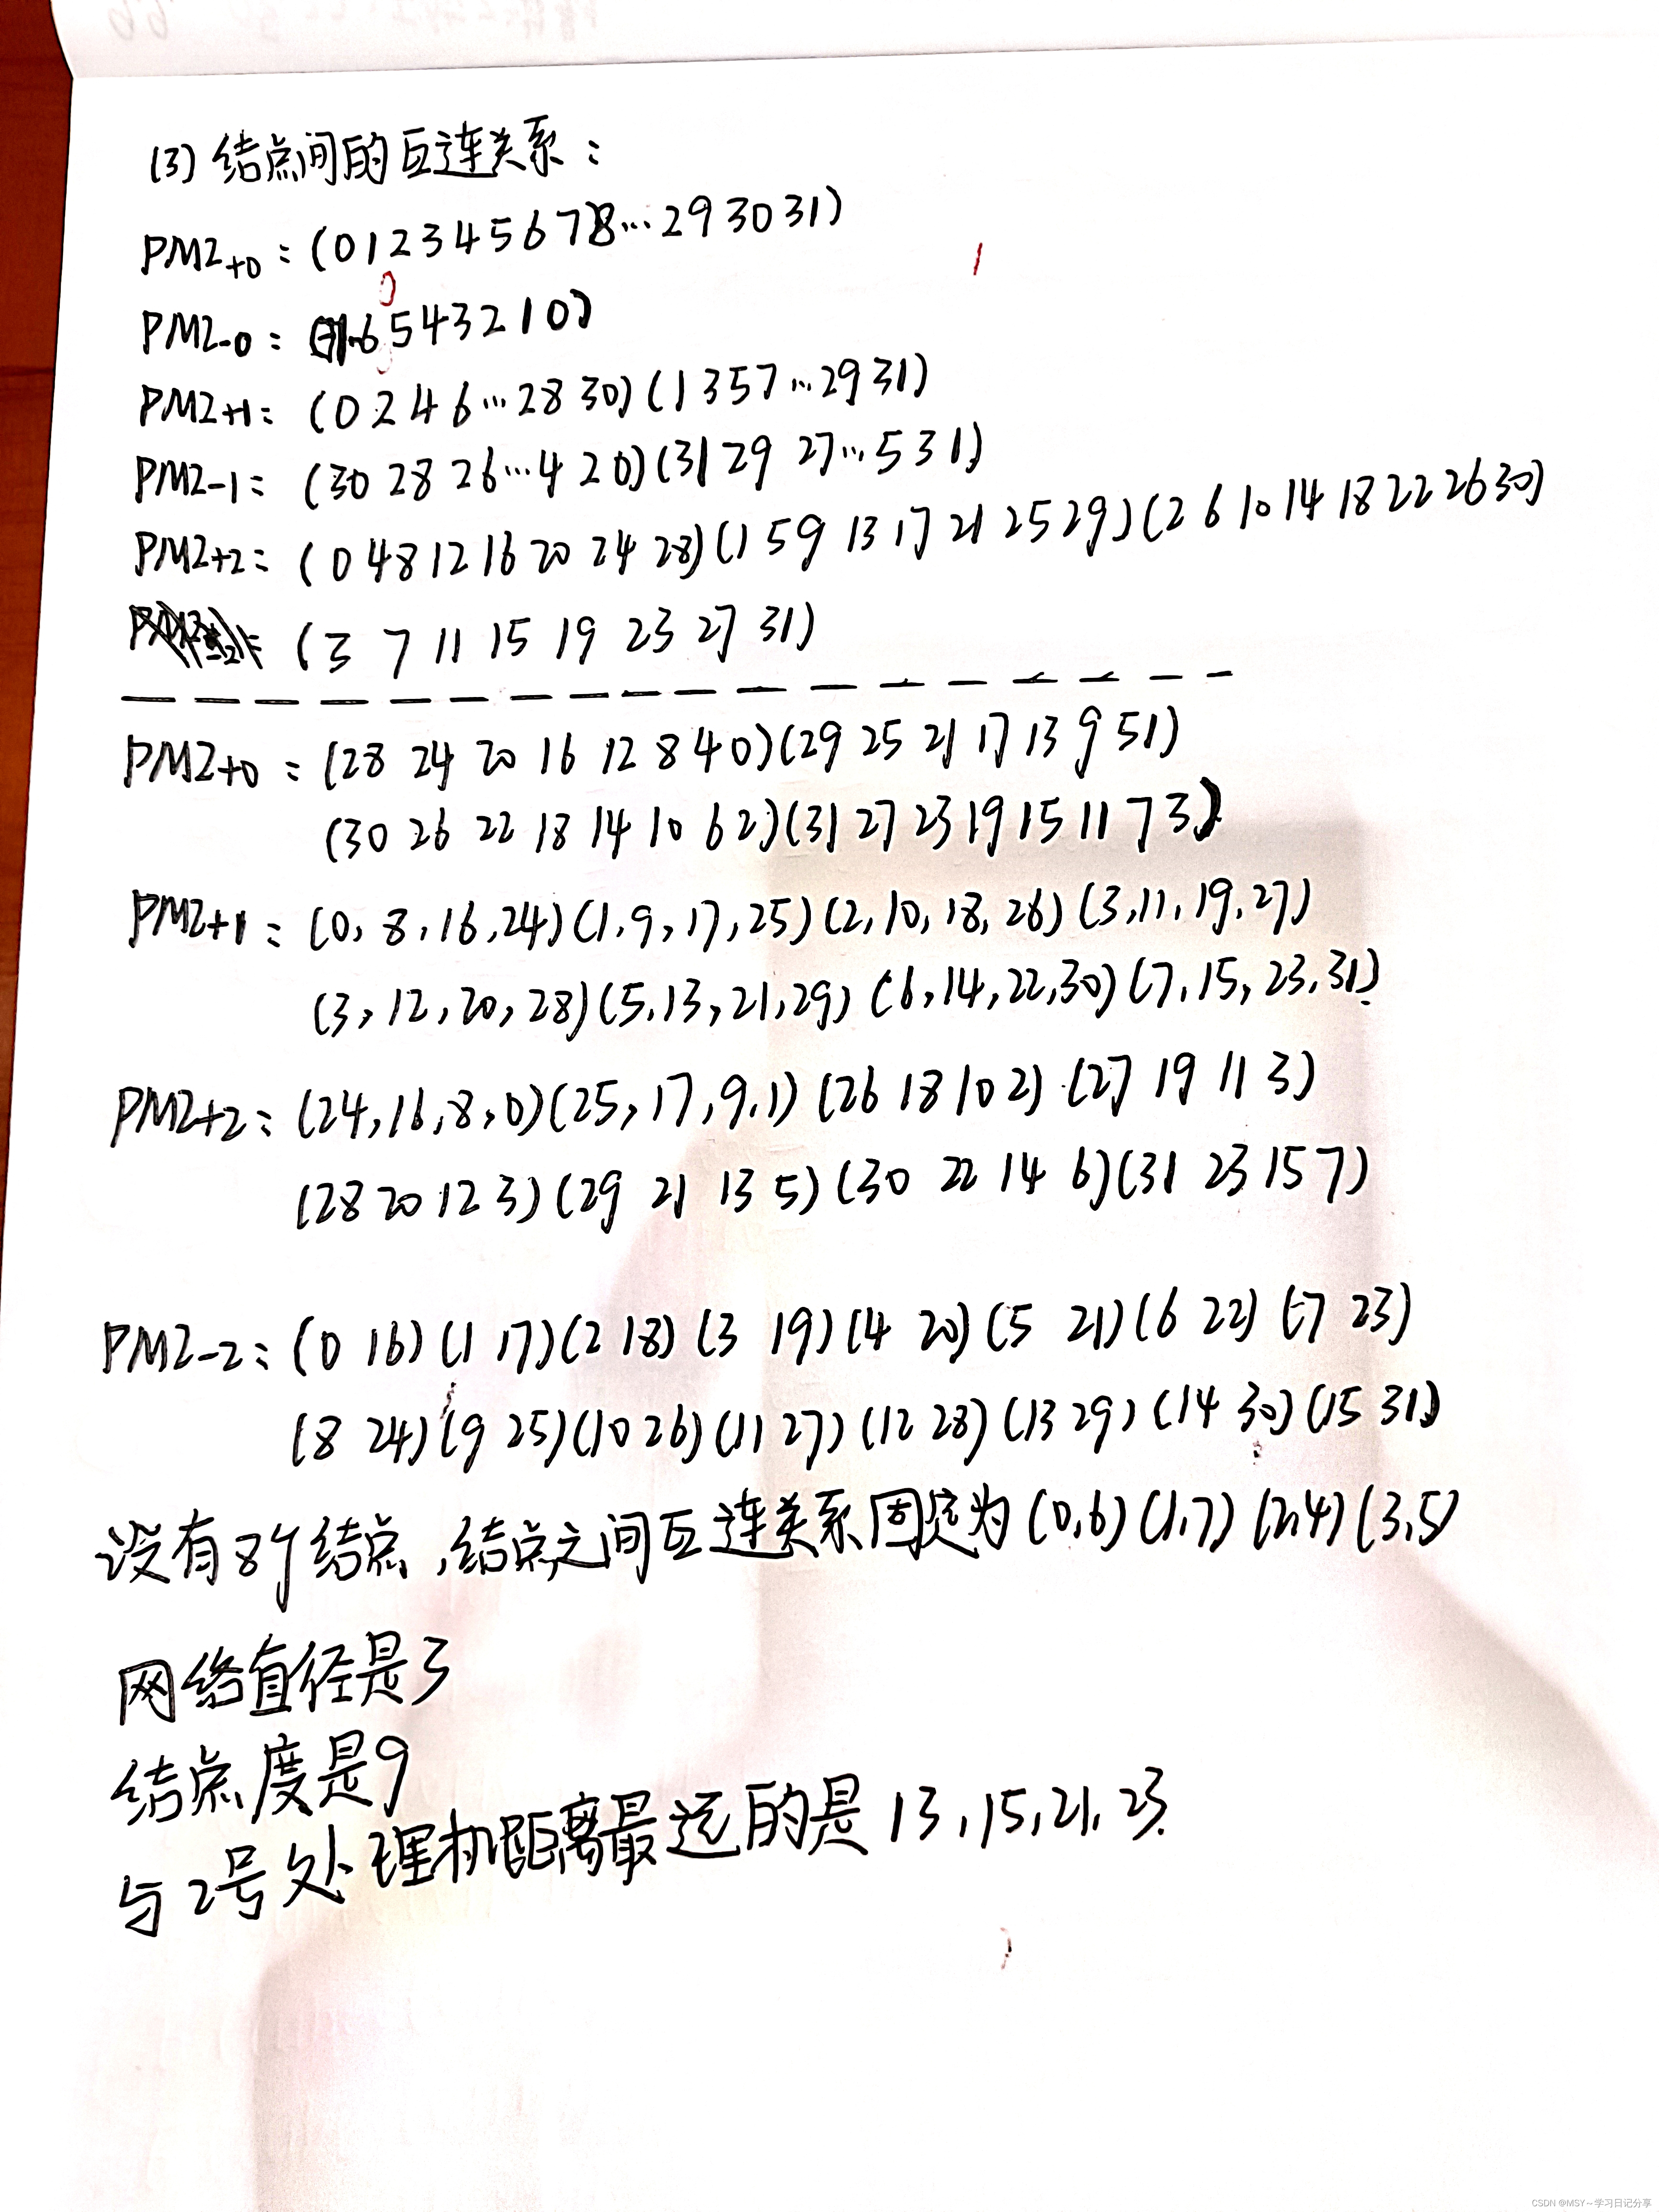 (3) 结点间的互连关系：
PM2+0 : (0 1 2 3 4 5 6 7 8 … 29 30 31)
PM2-0 : 6 5 4 3 2 1 0)
PM2+1 : (0 2 4 6 … 28 30) (1 3 5 7 … 29 31)
PM2-1 : (30 28 26 … 4 2 0) (31 29 27 … 5 3 1)
PM2+2 : (0 4 8 12 16 20 24 28) (1 5 9 13 17 21 25 29) (2 6 10 14 18 22 26 30)
(3 7 11 15 19 23 27 31)
PM2+0 : (28 24 20 16 12 8 4 0) (29 25 21 17 13 9 5 1)
(30 26 22 18 14 10 6 2) (31 27 23 19 15 11 7 3)
PM2+1 : (0, 8, 16, 24) (1, 9, 17, 25) (2, 10, 18, 26) (3, 11, 19, 27)
(3, 12, 20, 28) (5, 13, 21, 29) (6, 14, 22, 30) (7, 15, 23, 31)
PM2+2 : (24, 16, 8, 0) (25, 17, 9, 1) (26 18 10 2) (27 19 11 3)
(28 20 12 3) (29 21 13 5) (30 22 14 6) (31 23 15 7)
PM2-2 : (0 16) (1 17) (2 18) (3 19) (4 20) (5 21) (6 22) (7 23)
(8 24) (9 25) (10 26) (11 27) (12 28) (13 29) (14 30) (15 31)
设有8个结点，结点之间互连关系固定为 (0,6) (1,7) (2,4) (3,5)
网络直径是3
结点度是9
与2号处理机距离最远的是 13, 15, 21, 23.
CSDN @MSY～学习日记分享